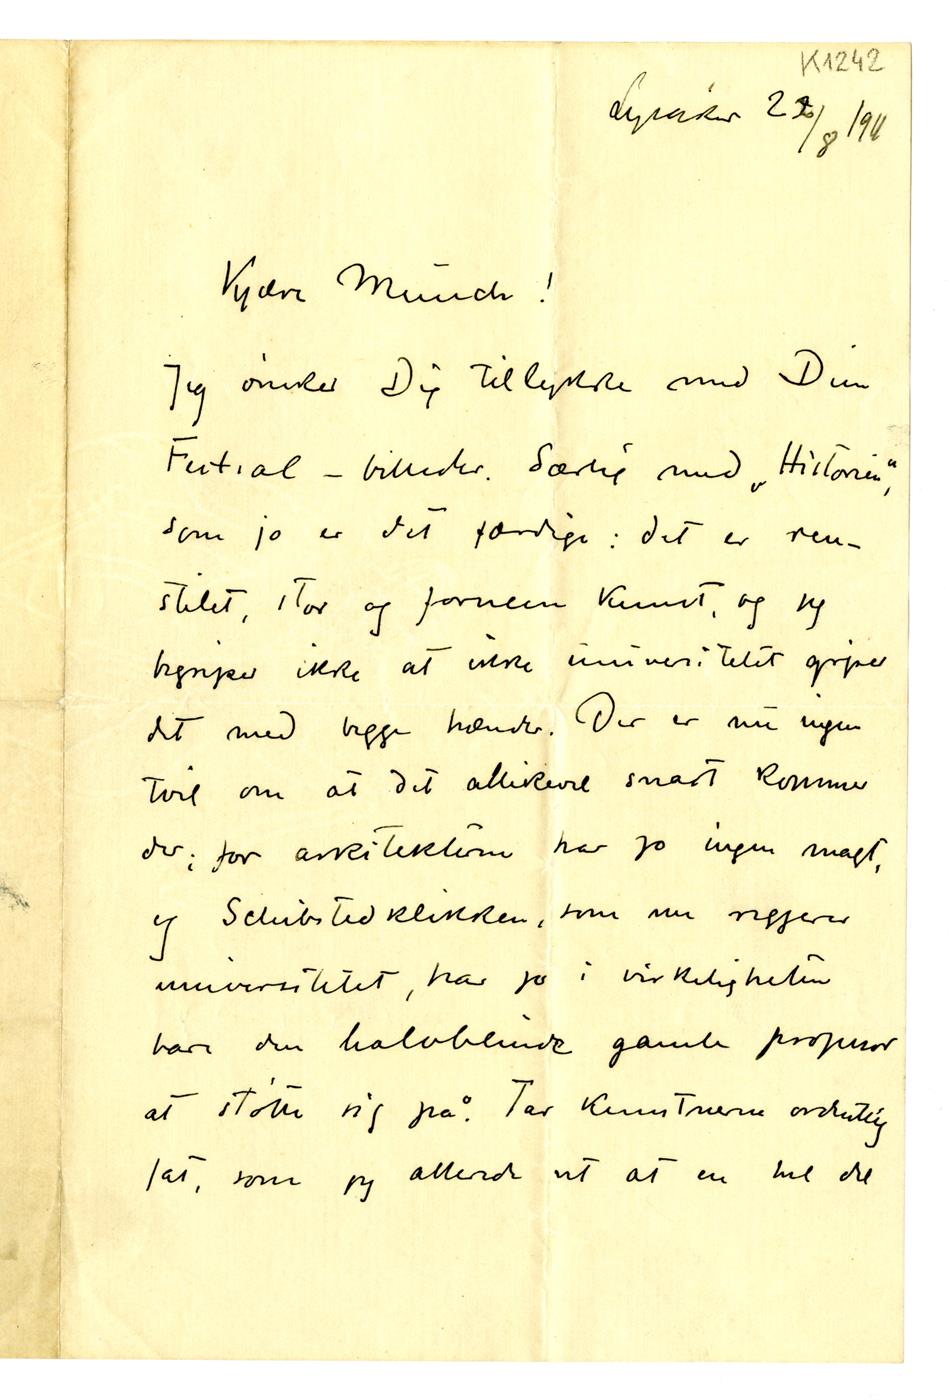 K1242
Lysaker 22/8 1911
Kjære Munch!
Jeg ønsker Dig tillykke med Dine
Festsal-billeder. Særlig med „Historien",
som jo er det færdige: det er ren-
stilet, stor og fornem kunst, og jeg
begriper ikke at ikke universitetet griper
det med begge hænder. Der er nu ingen
tvil om at det allikevel snart kommer
der; for arkitekterne har jo ingen magt,
og Schibstedklikken, som nu regjerer
universitetet, har jo i virkeligheten
bare den halvblinde gamle professor
at støtte sig på. Tar kunstnerne ordentlig
fat, som jeg allerede vet at en hel del